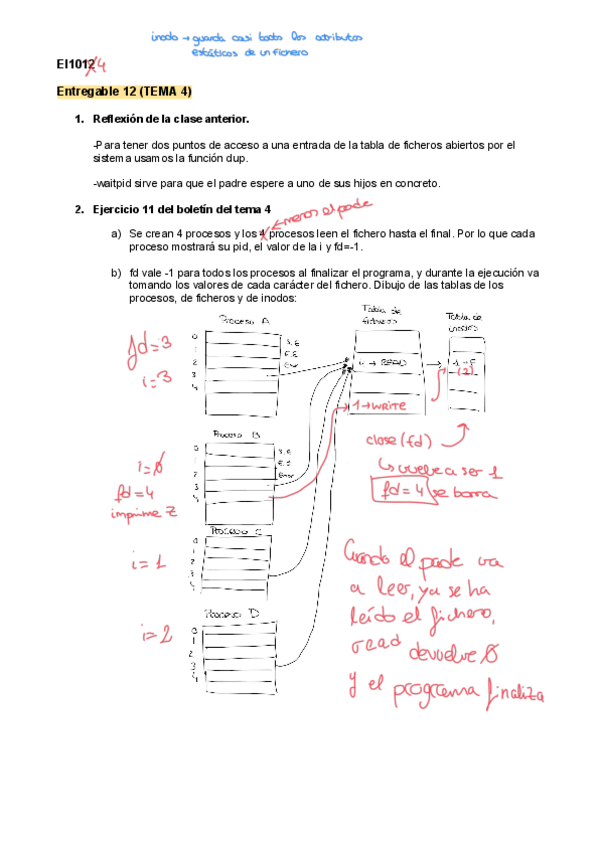 inodo → guarda casi todos los atributos
estáticos de un fichero
EI1012 4
Entregable 12 (TEMA 4)
1. Reflexión de la clase anterior.
-Para tener dos puntos de acceso a una entrada de la tabla de ficheros abiertos por el
sistema usamos la función dup.
-waitpid sirve para que el padre espere a uno de sus hijos en concreto.
2. Ejercicio 11 del boletín del tema 4
menos el padre
a) Se crean 4 procesos y los 4 procesos leen el fichero hasta el final. Por lo que cada
proceso mostrará su pid, el valor de la i y fd=-1.
b) fd vale -1 para todos los procesos al finalizar el programa, y durante la ejecución va
tomando los valores de cada carácter del fichero. Dibujo de las tablas de los
procesos, de ficheros y de inodos:
Proceso A
Tabla de
ficheros
Tabla de
inodos
fd=3
i=3
0
1
2
3
4
S.E
E.E
Error
4 → READ
1 → F
(2)
1→WRITE
Proceso B
i=0
fd=4
imprime Z
0
1
2
3
4
S.E
E.S
Error
close(fd)
↳ vuelve a ser 1
fd=4 se borra
Proceso C
i=1
0
1
2
3
4
Proceso D
i=2
0
1
2
3
4
Cuando el padre va
a leer, ya se ha
leído el fichero,
read devuelve 0
y el programa finaliza